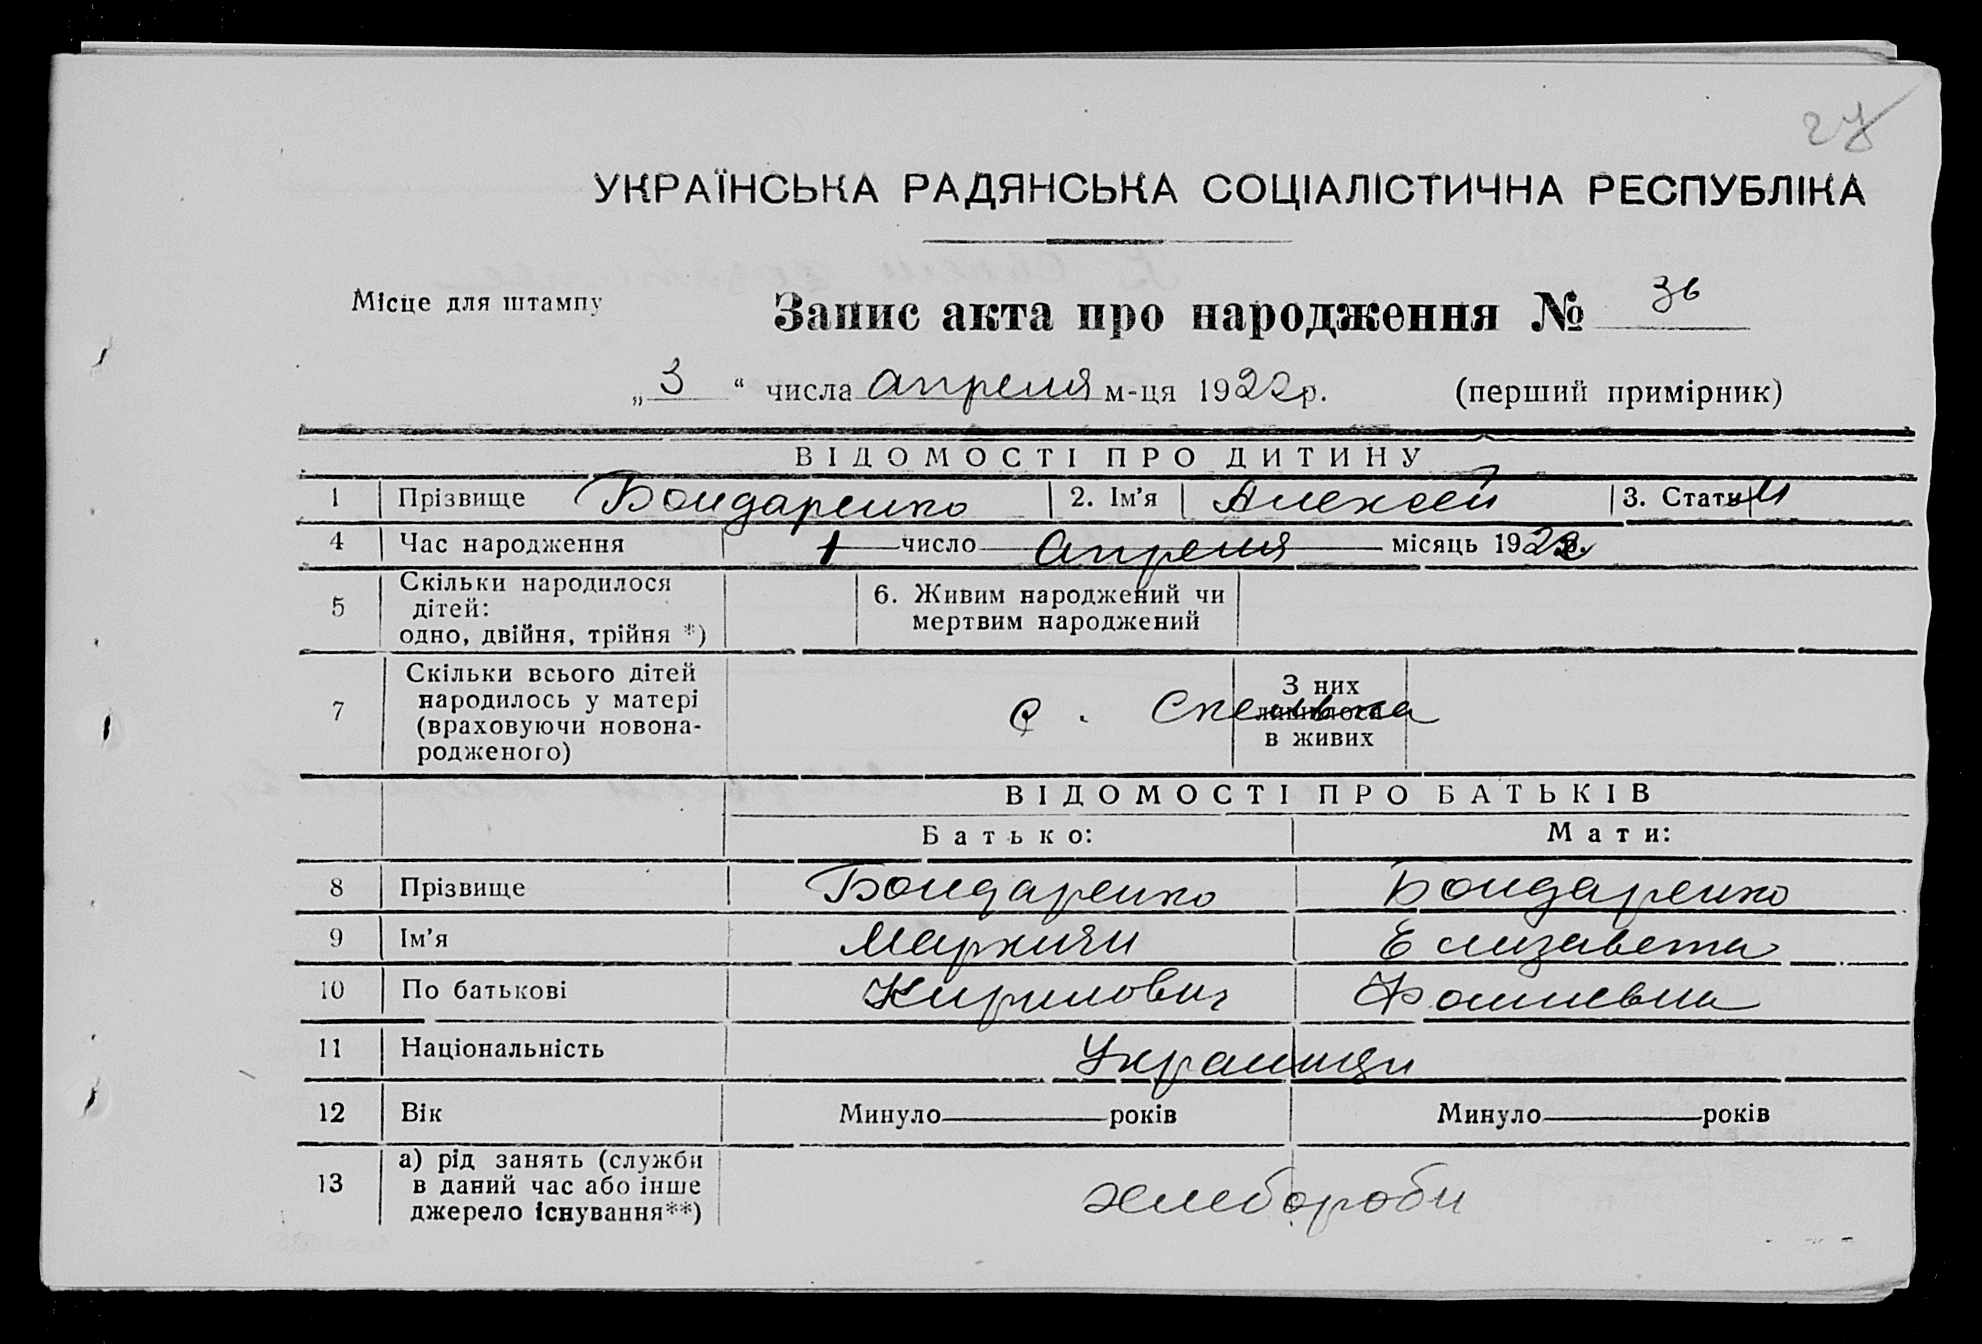 27
УКРАЇНСЬКА РАДЯНСЬКА СОЦІАЛІСТИЧНА РЕСПУБЛІКА
Місце для штампу
Запис акта про народження № 36
„ 3 “ числа апреля м-ця 1922 р. (перший примірник)
ВІДОМОСТІ ПРО ДИТИНУ
1 Прізвище Бондаренко 2. Ім’я Алексей 3. Стать м
4 Час народження 1 число апреля місяць 1922
5 Скільки народилося дітей: одно, двійня, трійня *) 6. Живим народжений чи мертвим народжений
7 Скільки всього дітей народилось у матері (враховуючи новонародженого) С. З них лишилося в живих
ВІДОМОСТІ ПРО БАТЬКІВ
Батько: Мати:
8 Прізвище Бондаренко Бондаренко
9 Ім’я Елизавета
10 По батькові Кирилович Фомиевна
11 Національність Украинци
12 Вік Минуло років Минуло років
13 а) рід занять (служби в даний час або інше джерело існування**) хлебороби